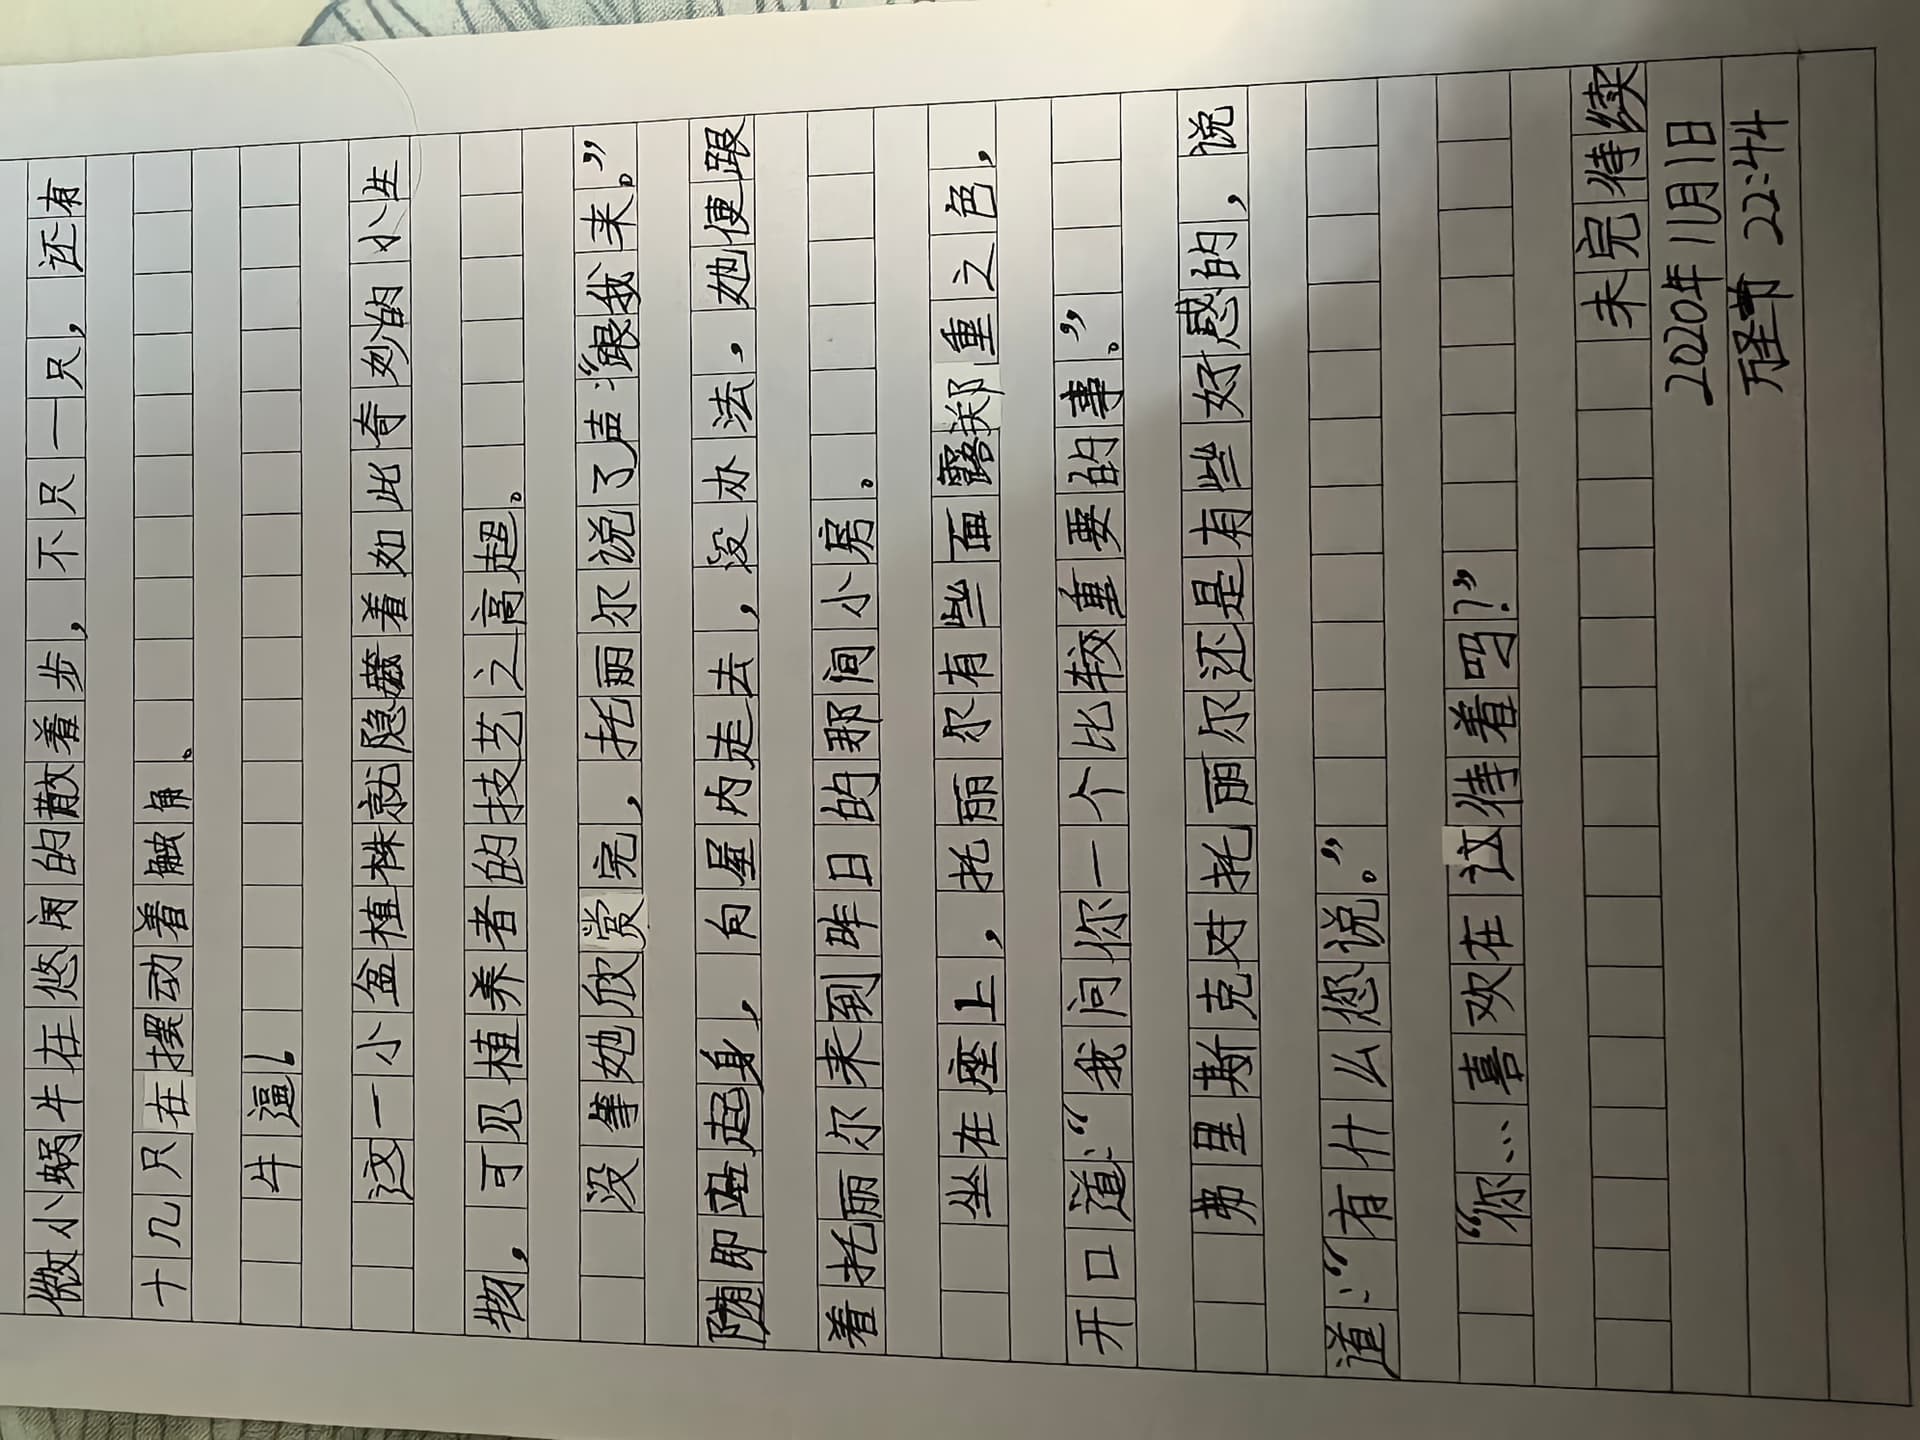 微小蜗牛在悠闲的散着步，不只一只，还有
十几只在摆动着触角。
牛逼！
这一小盆植株就隐藏着如此奇妙的小生
物，可见植养者的技艺之高超。
没等她欣赏完，托丽尔说了声：“跟我来。”
随即站起身，向屋内走去，没办法，她便跟
着托丽尔来到昨日的那间小房。
坐在座上，托丽尔有些面露郑重之色，
开口道：“我问你一个比较重要的事。”
弗里斯克对托丽尔还是有些好感的，说
道：“有什么您说。”
“你…喜欢在这待着吗？”
未完待续
2020年11月1日
万圣节 22:44